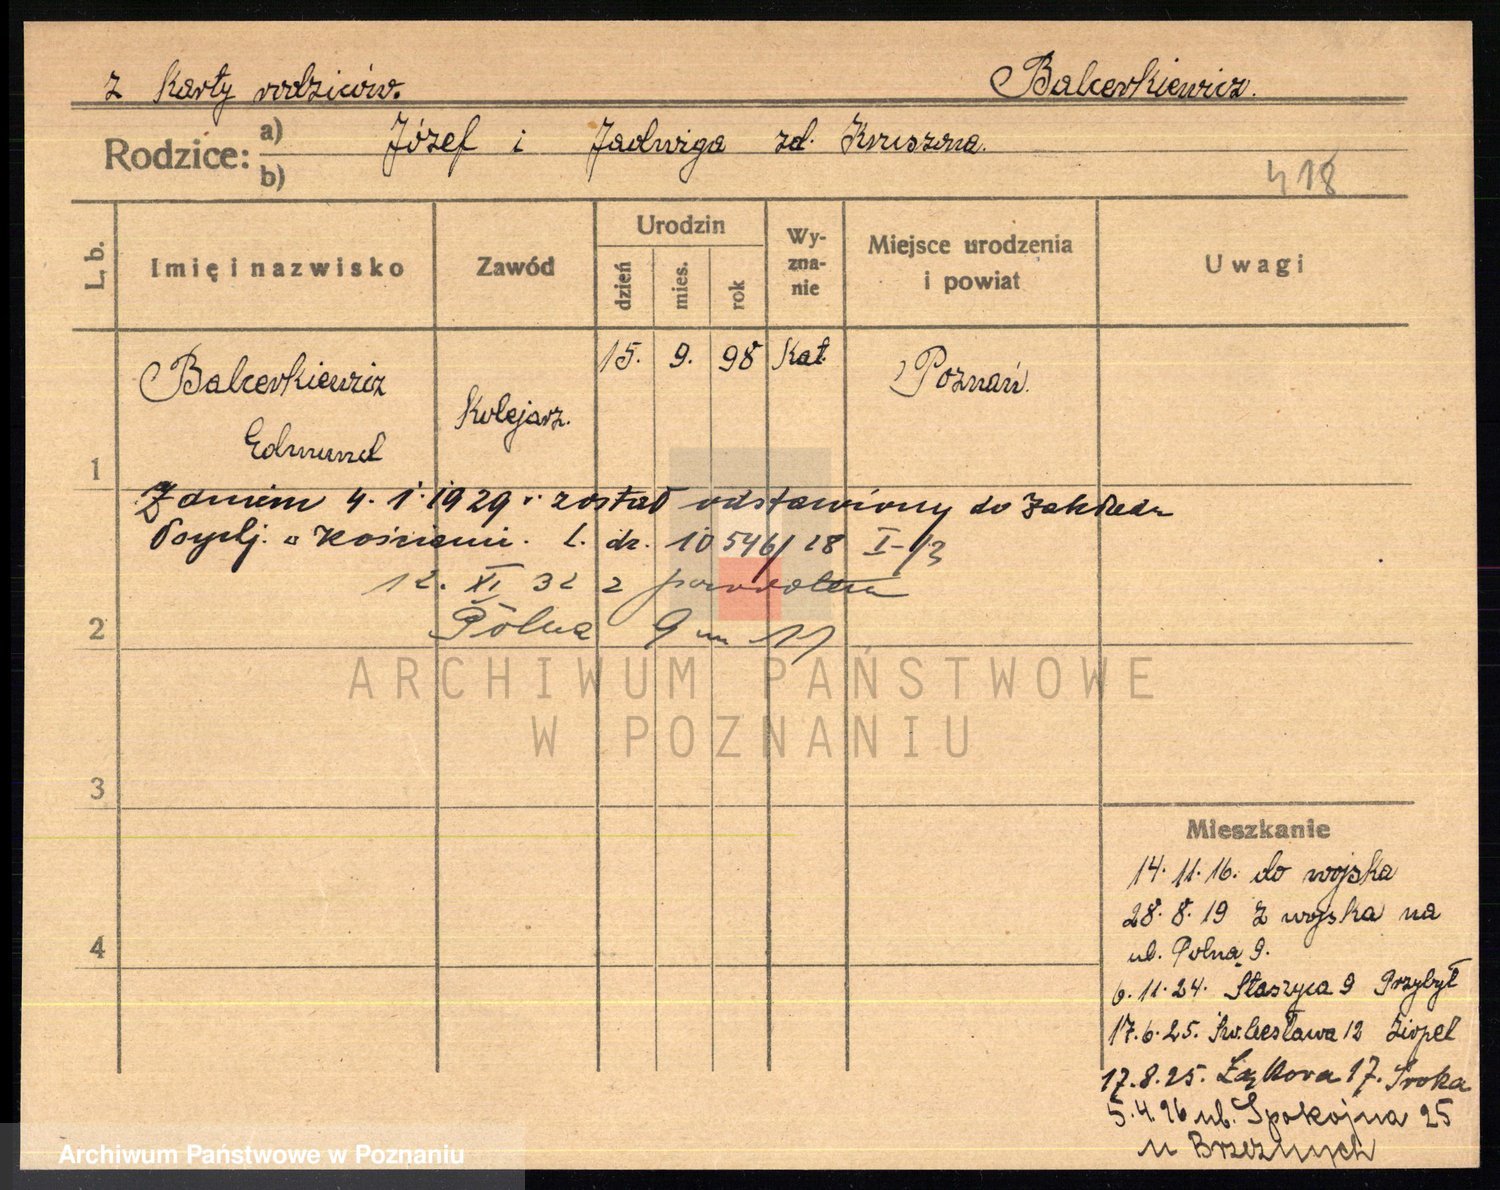 z Karty rodziców.
Balcerkiewicz.
Rodzice: a) Józef i Jadwiga zd. Kruszona.
b)
418
L. b.
Imię i nazwisko
Zawód
Urodzin
dzień
mies.
rok
Wy-
zna-
nie
Miejsce urodzenia
i powiat
Uwagi
1
Balcerkiewicz
Edmund
Kolejarz.
15. 9. 98
Kat.
Poznań.
Z dniem 4. 1. 1929 r. został odstawiony do Zakładu
Psych. w Kościanie. L. dz. 10546/28 I-/3
12. XI 32 z powrotem
2
Polna 9 m 11
ARCHIWUM PAŃSTWOWE
W POZNANIU
3
4
Mieszkanie
14. 11. 16. do wojska
28. 8. 19 z wojska na
ul. Polną 9.
6. 11. 24. Staszyca 9 Przybył
17. 6. 25. 12
17. 8. 25. Łąkowa 17. Sroka
5. 4. 26 ul. Spokojna 25
u Brzeznych
Archiwum Państwowe w Poznaniu